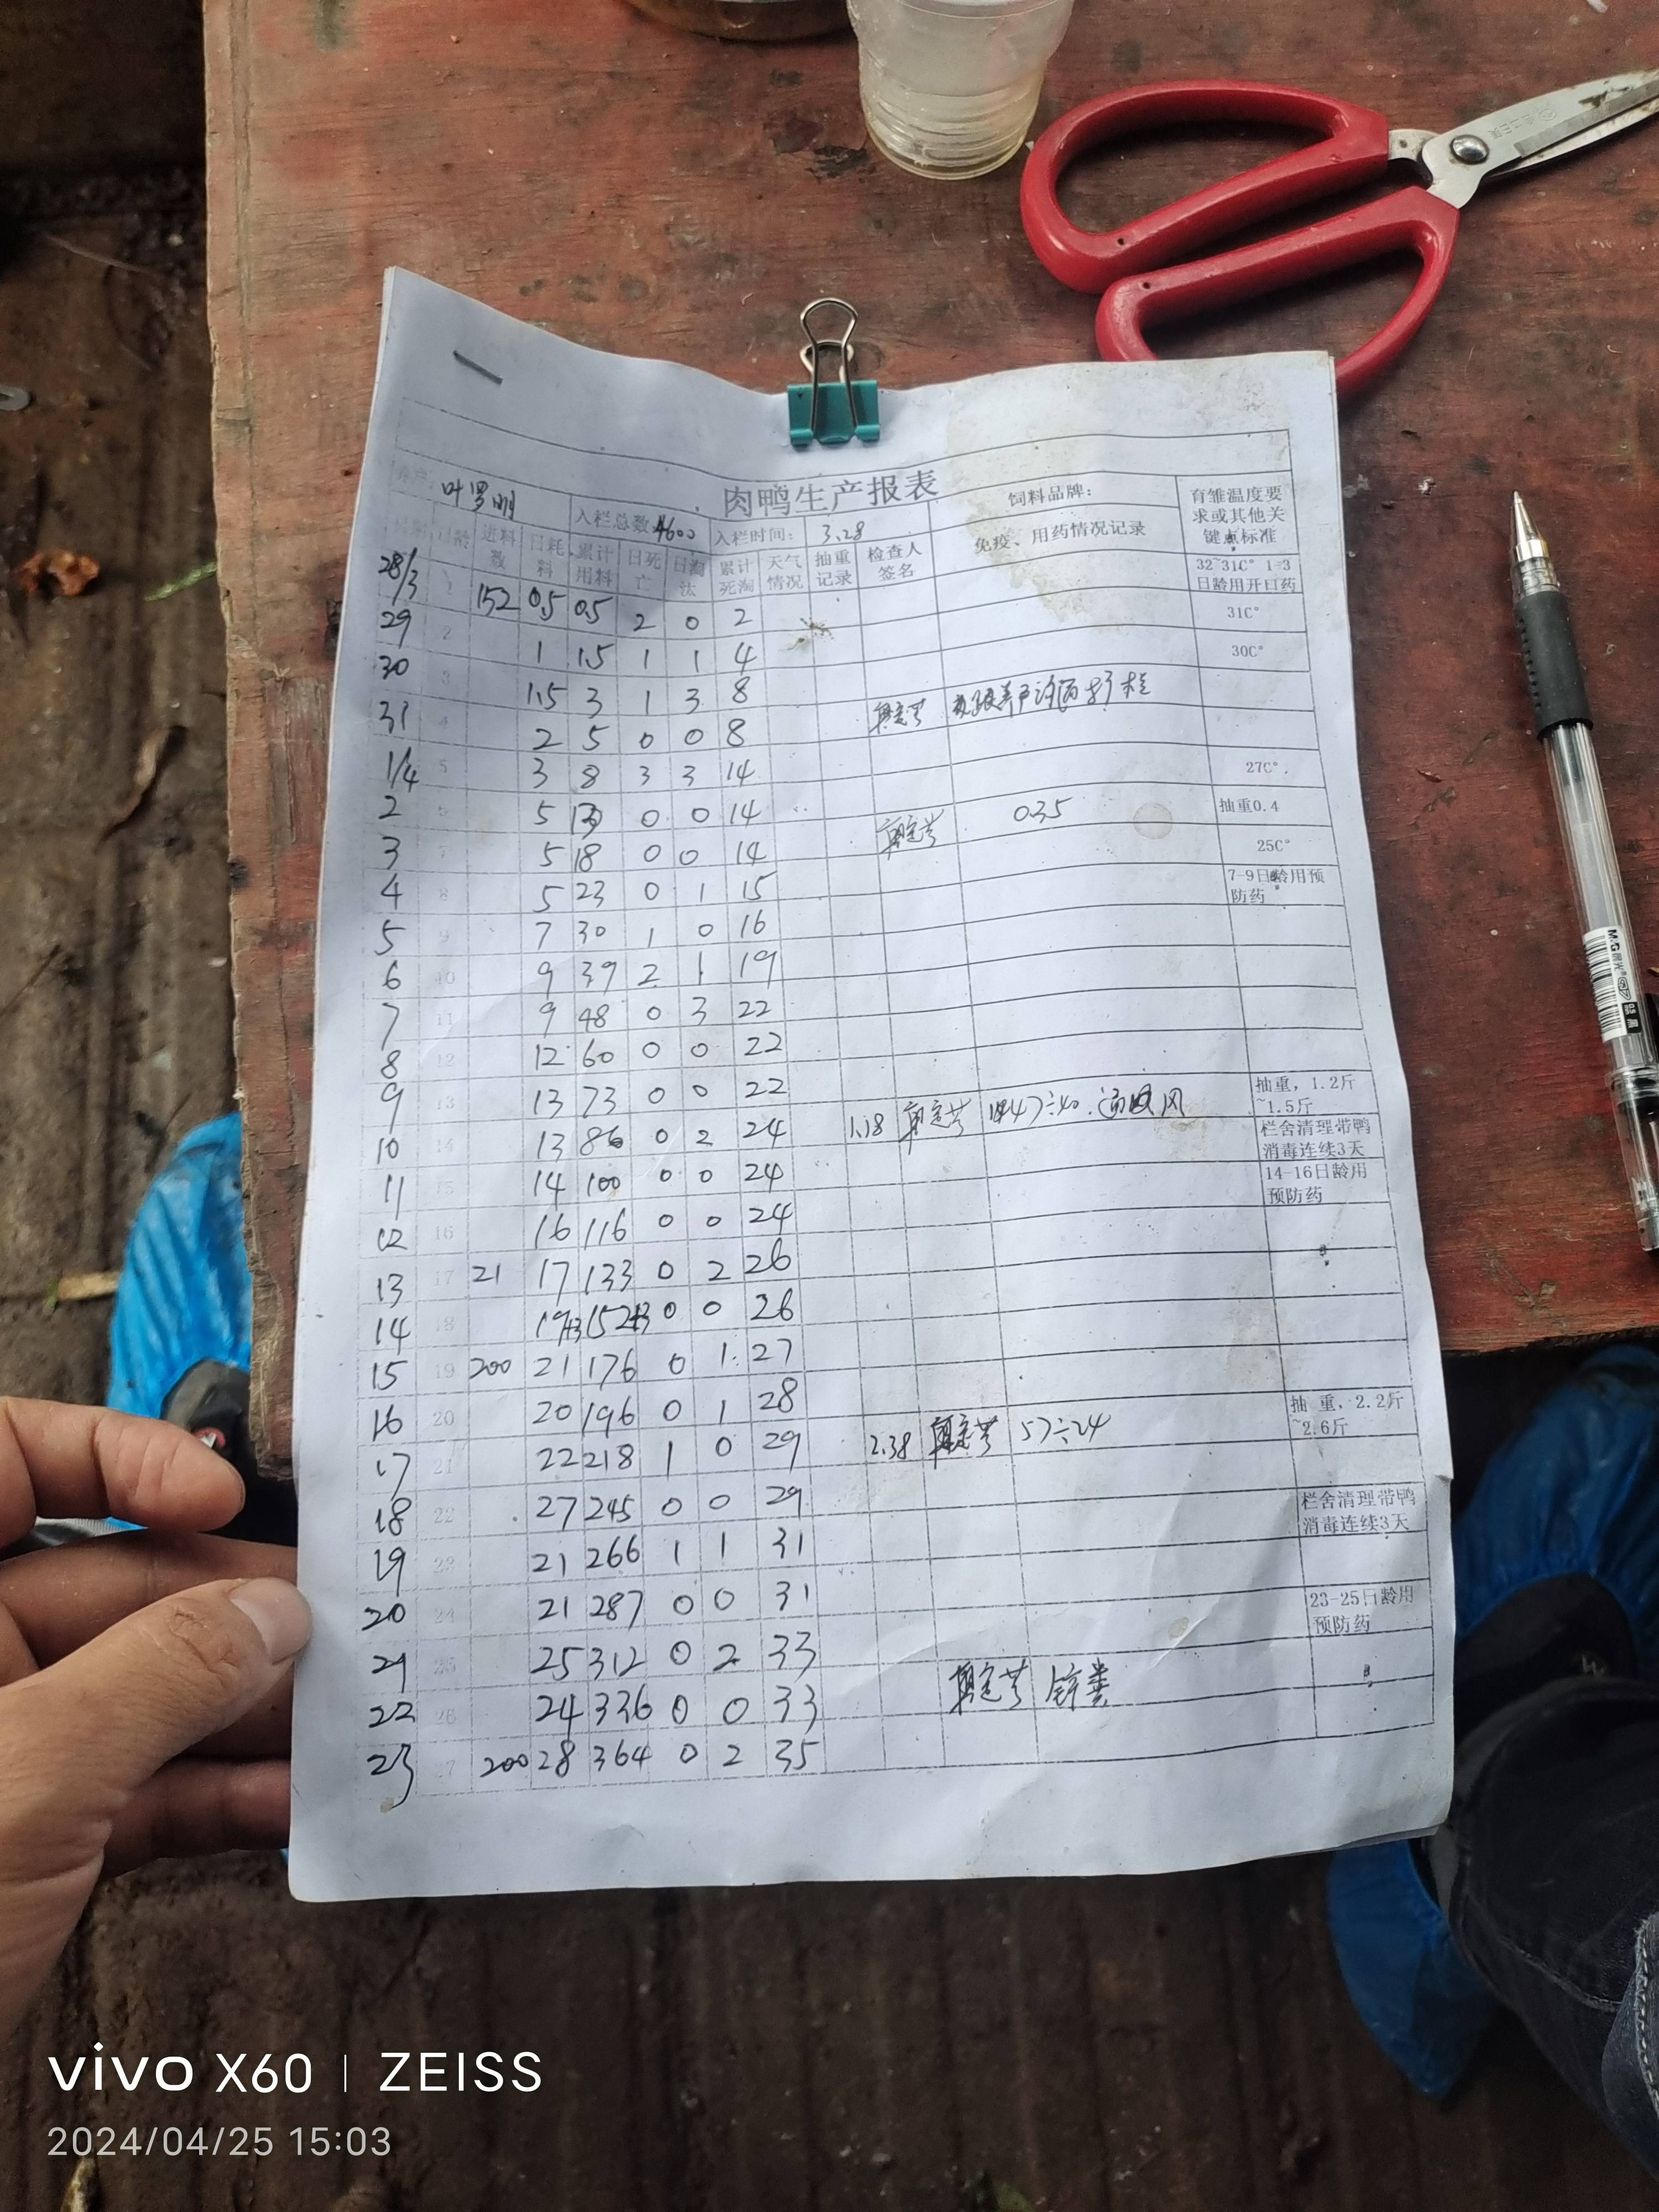 肉鸭生产报表
养户: 叶罗明 入栏总数: 4600 入栏时间: 3.28 饲料品牌: 育雏温度要求或其他关键点标准
日期 日龄 进料数 日耗料 累计用料 日死亡 日淘汰 累计死淘 天气情况 抽重记录 检查人签名 免疫、用药情况记录
28/3 1 152 0.5 0.5 2 0 2 32~31C° 1-3日龄用开口药
29 2 1 1.5 1 1 4 31C°
30 3 1.5 3 1 3 8 30C°
31 4 2 5 0 0 8
1/4 5 3 8 3 3 14 27C°
2 6 5 13 0 0 14 抽重0.4
3 7 5 18 0 0 14 0.35 25C°
4 8 5 23 0 1 15 7-9日龄用预防药
5 9 7 30 1 0 16
6 10 9 39 2 1 19
7 11 9 48 0 3 22
8 12 12 60 0 0 22
9 13 13 73 0 0 22 抽重, 1.2斤~1.5斤
10 14 13 86 0 2 24 1.18 47÷40 风 栏舍清理带鸭消毒连续3天
11 15 14 100 0 0 24 14-16日龄用预防药
12 16 16 116 0 0 24
13 17 21 17 133 0 2 26
14 18 19+3 152+3 0 0 26
15 19 200 21 176 0 1 27
16 20 20 196 0 1 28 抽 重, 2.2斤~2.6斤
17 21 22 218 1 0 29 2.38 57÷24
18 22 27 245 0 0 29 栏舍清理带鸭消毒连续3天
19 23 21 266 1 1 31
20 24 21 287 0 0 31 23-25日龄用预防药
21 25 25 312 0 2 33
22 26 24 336 0 0 33
23 27 200 28 364 0 2 35
M&G 晨光
vivo X60 | ZEISS
2024/04/25 15:03